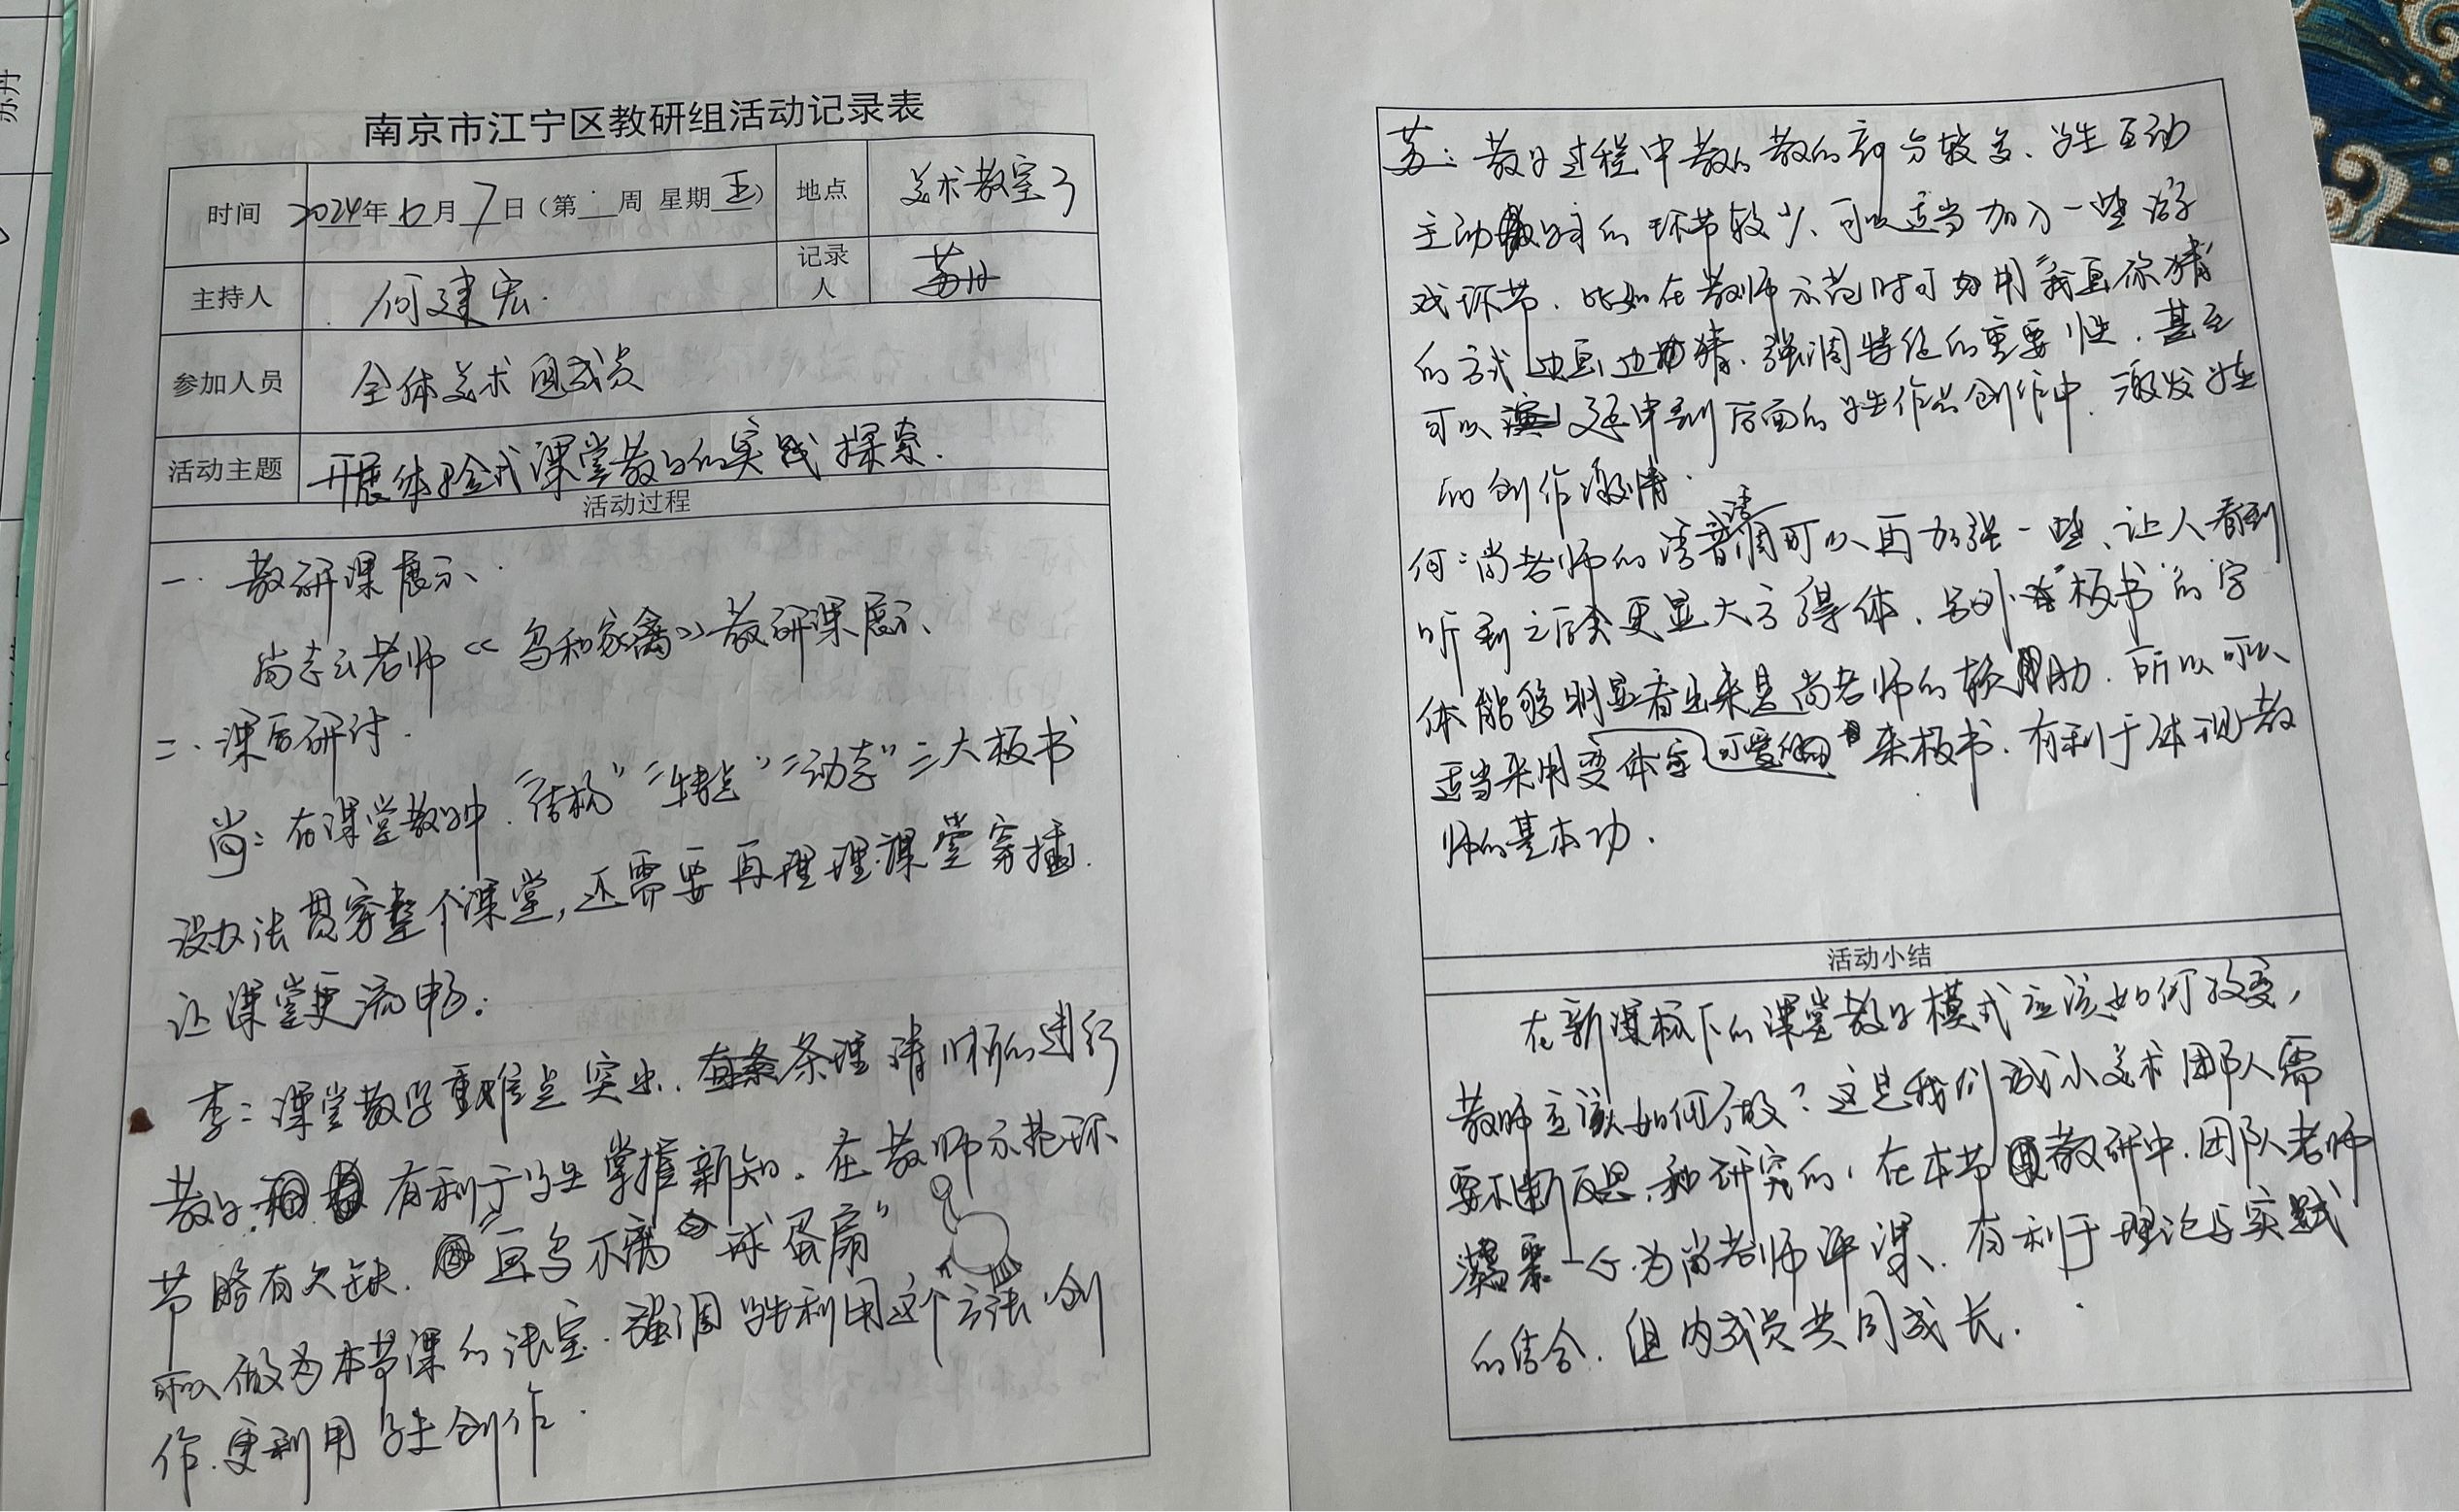 南京市江宁区教研组活动记录表
时间 2024年6月7日（第 周 星期五） 地点 美术教室3
主持人 何建宏 记录人 苏丹
参加人员 全体美术组成员
活动主题 开展体验式课堂教学的实践探索.
活动过程
一. 教研课展示.
尚志云老师《鸟和家禽》教研课展示.
二. 课后研讨.
尚: 在课堂教学中."结构""特点""动态"三大板书
没办法贯穿整个课堂,还需要再理理课堂穿插.
让课堂更流畅.
李: 课堂教学重难点突出. 条理清晰的进行
教学. 有利于学生掌握新知. 在教师示范环
节略有欠缺. "画鸟不离球蛋扇"
可以做为本节课的法宝. 强调学生利用这个方法创
作.更利用学生创作.
苏: 教学过程中教的部分较多. 学生互动
主动的环节较少. 可以适当加入一些游
戏环节. 比如在教师示范时可用"我画你猜"
的方式边画边猜. 强调特征的重要性. 甚至
可以延申到后面的学生作品创作中. 激发学生
的创作激情.
何: 尚老师的语音语调可以再加强一些、让人看到
听到之后会更显大方得体. 另外"板书"的字
体能够明显看出来是尚老师的 . 所以可以
适当采用变体字 来板书. 有利于体现教
师的基本功.
活动小结
在新课标下的课堂教学模式应该如何改变,
教师应该如何做? 这是我们诚小美术团队需
要不断反思和研究的. 在本节教研中. 团队老师
一个为尚老师评课. 有利于理论与实践
的结合. 组内成员共同成长.
苏丹